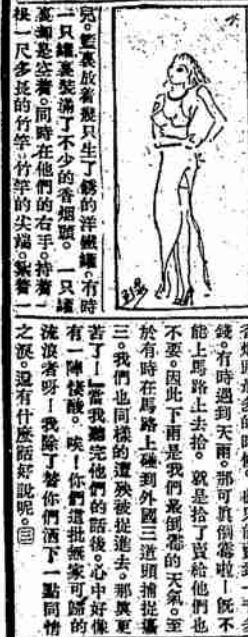 兒。籃裏放着幾只生了銹的洋鐵罐。有時
一只罐裏裝滿了不少的香烟頭。一只罐
裏却是空着。同時在他們的右手。持着一
根一尺多長的竹竿。竹竿的尖端。紮着一
錢。有時遇到天雨。那可眞倒霉啦！旣不
能上馬路上去拾。就是拾了賣給他們也
不要。因此下雨是我們最倒霉的天氣。至
於有時在馬路上碰到外國三道頭捕捉癟
三。我們也同樣的遭殃被捉進去。那眞更
苦了！」當我聽完他們的話後。心中好像
有一陣悽酸。唉！你們這批無家可歸的
流浪者呀！我除了替你們洒下一點同情
之淚。還有什麼話好說呢。㊂